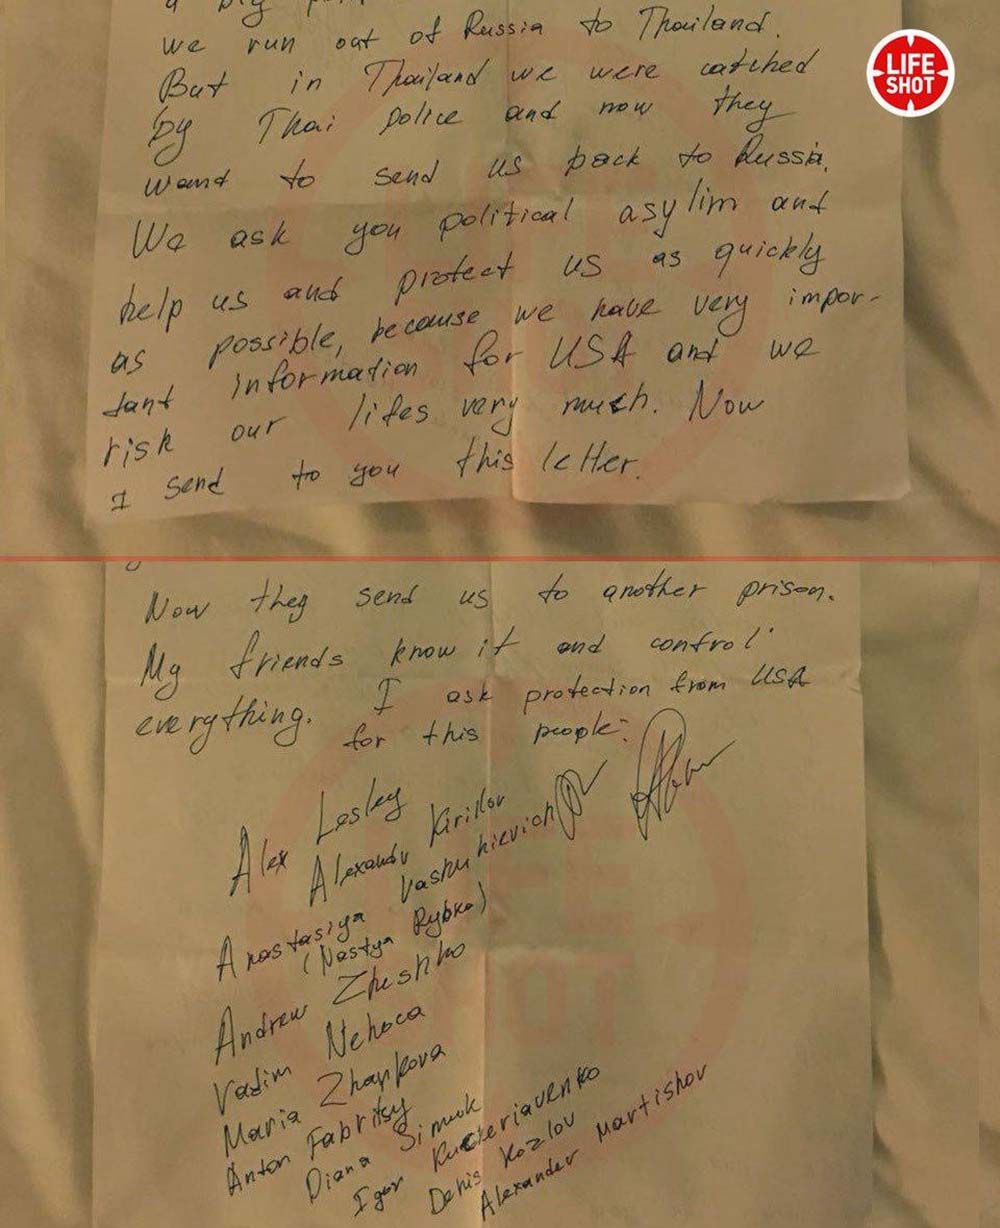 we run out of Russia to Thailand.
But in Thailand we were catched
by Thai police and now they
wand to send us back to Russia.
We ask you political asylim and
help us and protect us as quickly
as possible, because we have very impor-
tant information for USA and we
risk our lifes very much. Now
I send to you this letter.
LIFE
SHOT
Now they send us to another prison.
My friends know it and control
everything. I ask protection from USA
for this people:
Alex Lesley
Alexandr Kirillov
Anastasiya Vashukievich
(Nastya Rybka)
Andrew Zheshko
Vadim Nehoca
Maria Zharkova
Anton Fabritsy
Diana Simuk
Igor Kucheriavenko
Denis Kozlov
Alexander Martishov